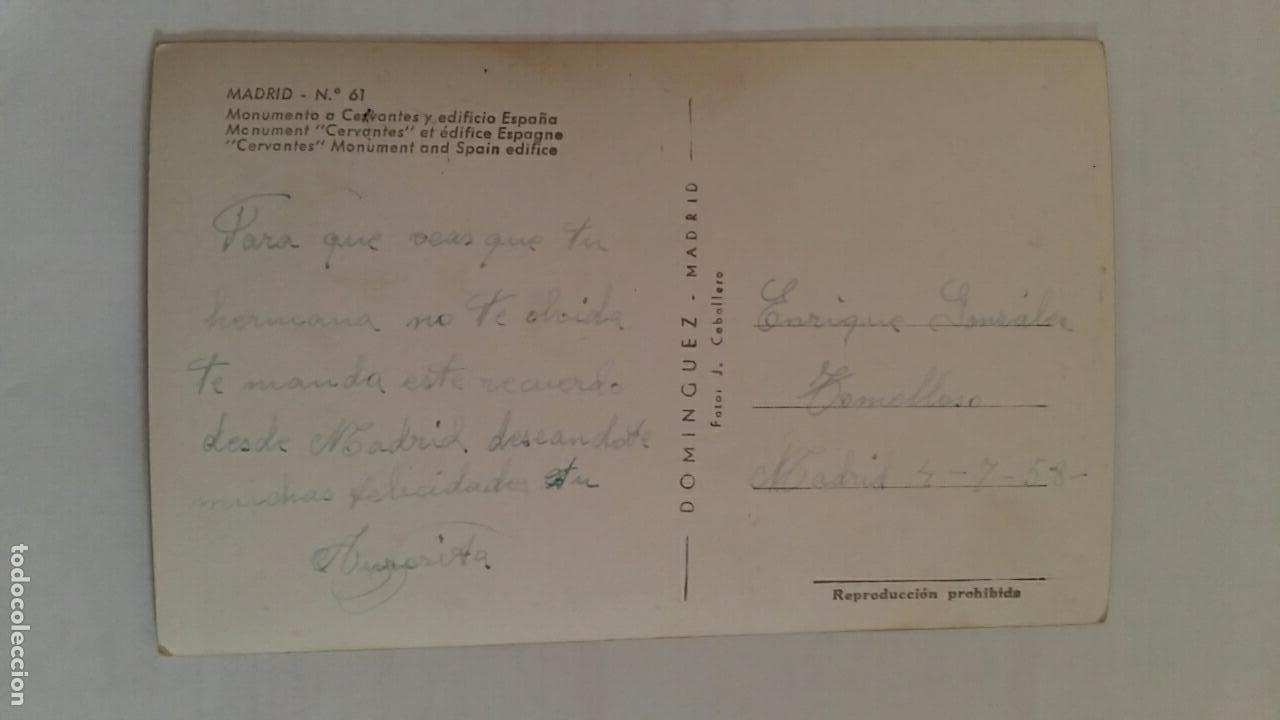 MADRID - N.º 61
Monumento a Cervantes y edificio España
Monument "Cervantes" et édifice Espagne
"Cervantes" Monument and Spain edifice
Para que veas que tu
hermana no te olvida
te manda este recuerdo
desde Madrid deseandote
muchas felicidades tu
Aurorita
DOMINGUEZ - MADRID
Foto: J. Ceballero
Enrique González
Tomelloso
Madrid 4-7-58-
Reproducción prohibida
todocoleccion